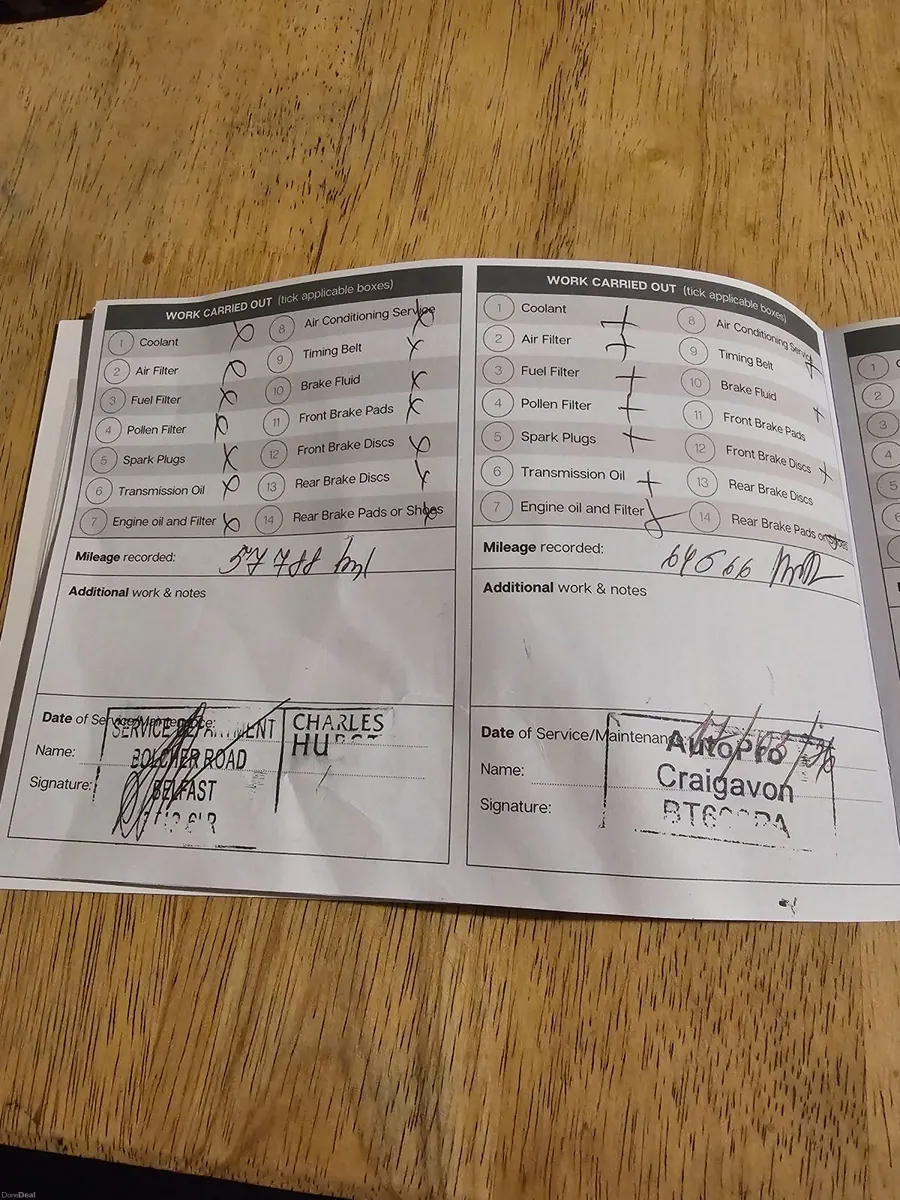 WORK CARRIED OUT (tick applicable boxes)
1 Coolant
2 Air Filter
3 Fuel Filter
4 Pollen Filter
5 Spark Plugs
6 Transmission Oil
7 Engine oil and Filter
8 Air Conditioning Service
9 Timing Belt
10 Brake Fluid
11 Front Brake Pads
12 Front Brake Discs
13 Rear Brake Discs
14 Rear Brake Pads or Shoes
Mileage recorded: 57788
Additional work & notes
Date of Service/Maintenance:
Name:
Signature:
SERVICE DEPARTMENT
BOUCHER ROAD
BELFAST
CHARLES
WORK CARRIED OUT (tick applicable boxes)
1 Coolant
2 Air Filter
3 Fuel Filter
4 Pollen Filter
5 Spark Plugs
6 Transmission Oil
7 Engine oil and Filter
8 Air Conditioning Service
9 Timing Belt
10 Brake Fluid
11 Front Brake Pads
12 Front Brake Discs
13 Rear Brake Discs
14 Rear Brake Pads or Shoes
Mileage recorded:
Additional work & notes
Date of Service/Maintenance
Name:
Signature:
AutoPro
Craigavon
1
2
3
4
5
DoneDeal